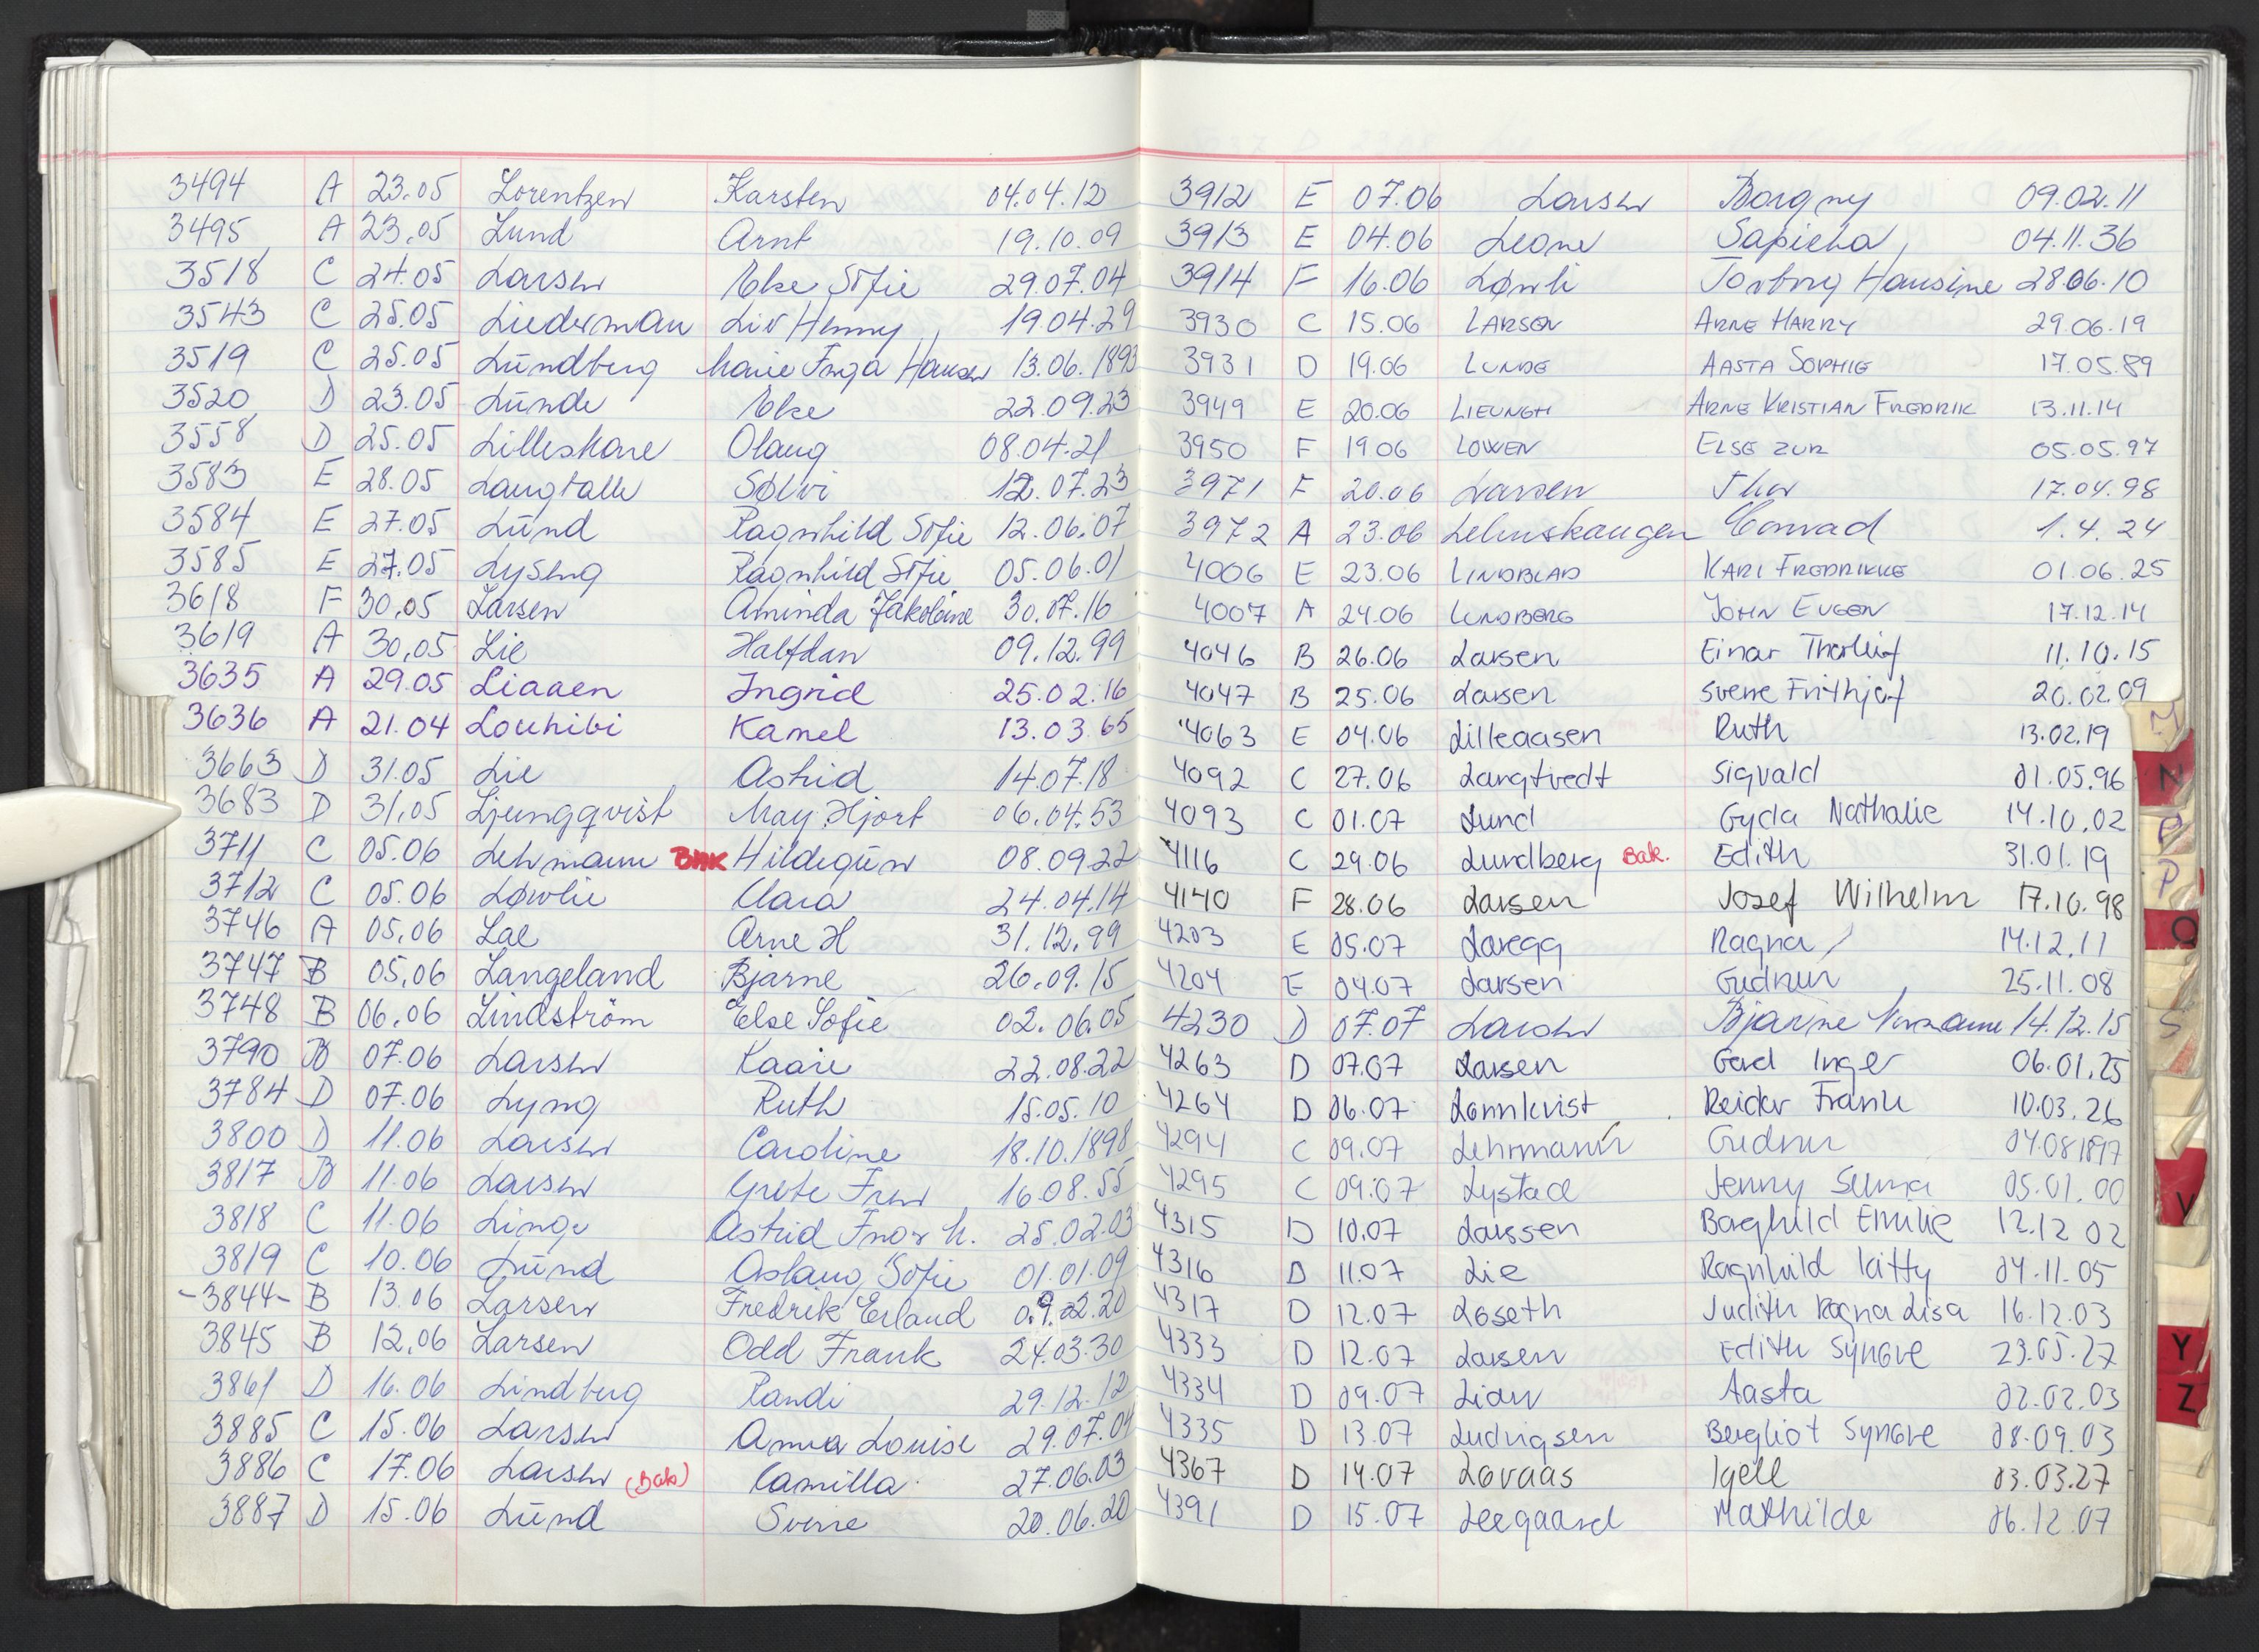 3494 A 23.05 Lorentzen Karsten 04.04.12
3495 A 23.05 Lund Arnt 19.10.09
3518 C 24.05 Larsen Elise Sofie 29.07.04
3543 C 25.05 Liederman Liv Henny 19.04.29
3519 C 25.05 Lundberg Marie Inga Hansen 13.06.1893
3520 D 23.05 Lunde 22.09.23
3558 D 25.05 Lilleskare Olaug 08.04.21
3583 E 28.05 Solvi 12.07.23
3584 E 27.05 Lund Ragnhild Sofie 12.06.07
3585 E 27.05 Lyseng Ragnhild Sofie 05.06.01
3618 F 30.05 Larsen Aminda Jakobine 30.07.16
3619 A 30.05 Lie Halfdan 09.12.99
3635 A 29.05 Liaaen Ingrid 25.02.16
3636 A 21.04 Louhibi Kamel 13.03.65
3663 D 31.05 Lie Astrid 14.07.18
3683 D 31.05 Ljungqvist May Hjort 06.04.53
3711 C 05.06 Lehmann BAK Hildegun 08.09.22
3712 C 05.06 Løvlie Clara 24.04.14
3746 A 05.06 Lae Arne H 31.12.99
3747 B 05.06 Langeland Bjarne 26.09.15
3748 B 06.06 Lindström Else Sofie 02.06.05
3790 B 07.06 Larsen Kaare 22.08.22
3784 D 07.06 Lyng Ruth 15.05.10
3800 D 11.06 Larsen Caroline 18.10.1898
3817 B 11.06 Larsen Grete 16.08.55
3818 C 11.06 Linge Astrid M. 25.02.03
3819 C 10.06 Lund Aslaug Sofie 01.01.09
-3844- B 13.06 Larsen Fredrik Erland 09.02.20
3845 B 12.06 Larsen Odd Frank 24.03.30
3861 D 16.06 Lindberg Randi 29.12.12
3885 C 15.06 Larsen Anna Louise 29.07.04
3886 C 17.06 Larsen (Bak) Camilla 27.06.03
3887 D 15.06 Lund Sverre 20.06.20
3912 E 07.06 Larsen Borgny 09.02.11
3913 E 04.06 Leone Sapieha 04.11.36
3914 F 16.06 Lørli Torborg Hansine 28.06.10
3930 C 15.06 LARSEN ARNE HARRY 29.06.19
3931 D 19.06 LUNDE AASTA SOPHIE 17.05.89
3949 E 20.06 LIEUNGH ARNE KRISTIAN FREDRIK 13.11.14
3950 F 19.06 LOWEN ELSE ZUR 05.05.97
3971 F 20.06 Larsen Thor 17.04.98
3972 A 23.06 Lehnskaugen Conrad 1.4.24
4006 E 23.06 LINDBLAD KARI FREDRIKKE 01.06.25
4007 A 24.06 LUNDBERG JOHN EUGEN 17.12.14
4046 B 26.06 Larsen Einar Thorleif 11.10.15
4047 B 25.06 Larsen Sverre Frithjof 20.02.09
4063 E 04.06 Lilleaasen Ruth 13.02.19
4092 C 27.06 Langtvedt Sigvald 01.05.96
4093 C 01.07 Lund Gyda Nathalie 14.10.02
4116 C 29.06 Lundberg Bak. Edith 31.01.19
4140 F 28.06 Larsen Josef Wilhelm 17.10.98
4203 E 05.07 Løvegg Ragna 14.12.11
4204 E 04.07 Larsen Gudrun 25.11.08
4230 D 07.07 Larsen Bjarne 14.12.15
4263 D 07.07 Larsen Gerd Inger 06.01.25
4264 D 06.07 Lønnkvist Reidar Frank 10.03.26
4294 C 09.07 Lehrmann Gudrun 04.08 1897
4295 C 09.07 Lystad Jenny Selma 05.01.00
4315 D 10.07 Larssen Borghild Emilie 12.12 02
4316 D 11.07 Lie Ragnhild Kitty 04.11.05
4317 D 12.07 Løseth Judith Ragna Lisa 16.12.03
4333 D 12.07 Larsen Edith Synøve 23.05.27
4334 D 09.07 Lian Aasta 02.02.03
4335 D 13.07 Ludvigsen Bergliot Synøve 08.09.03
4367 D 14.07 Løvaas Kjell 03.03.27
4391 D 15.07 Leegaard Mathilde 06.12.07
M
N
P
Q
S
V
Y
Z